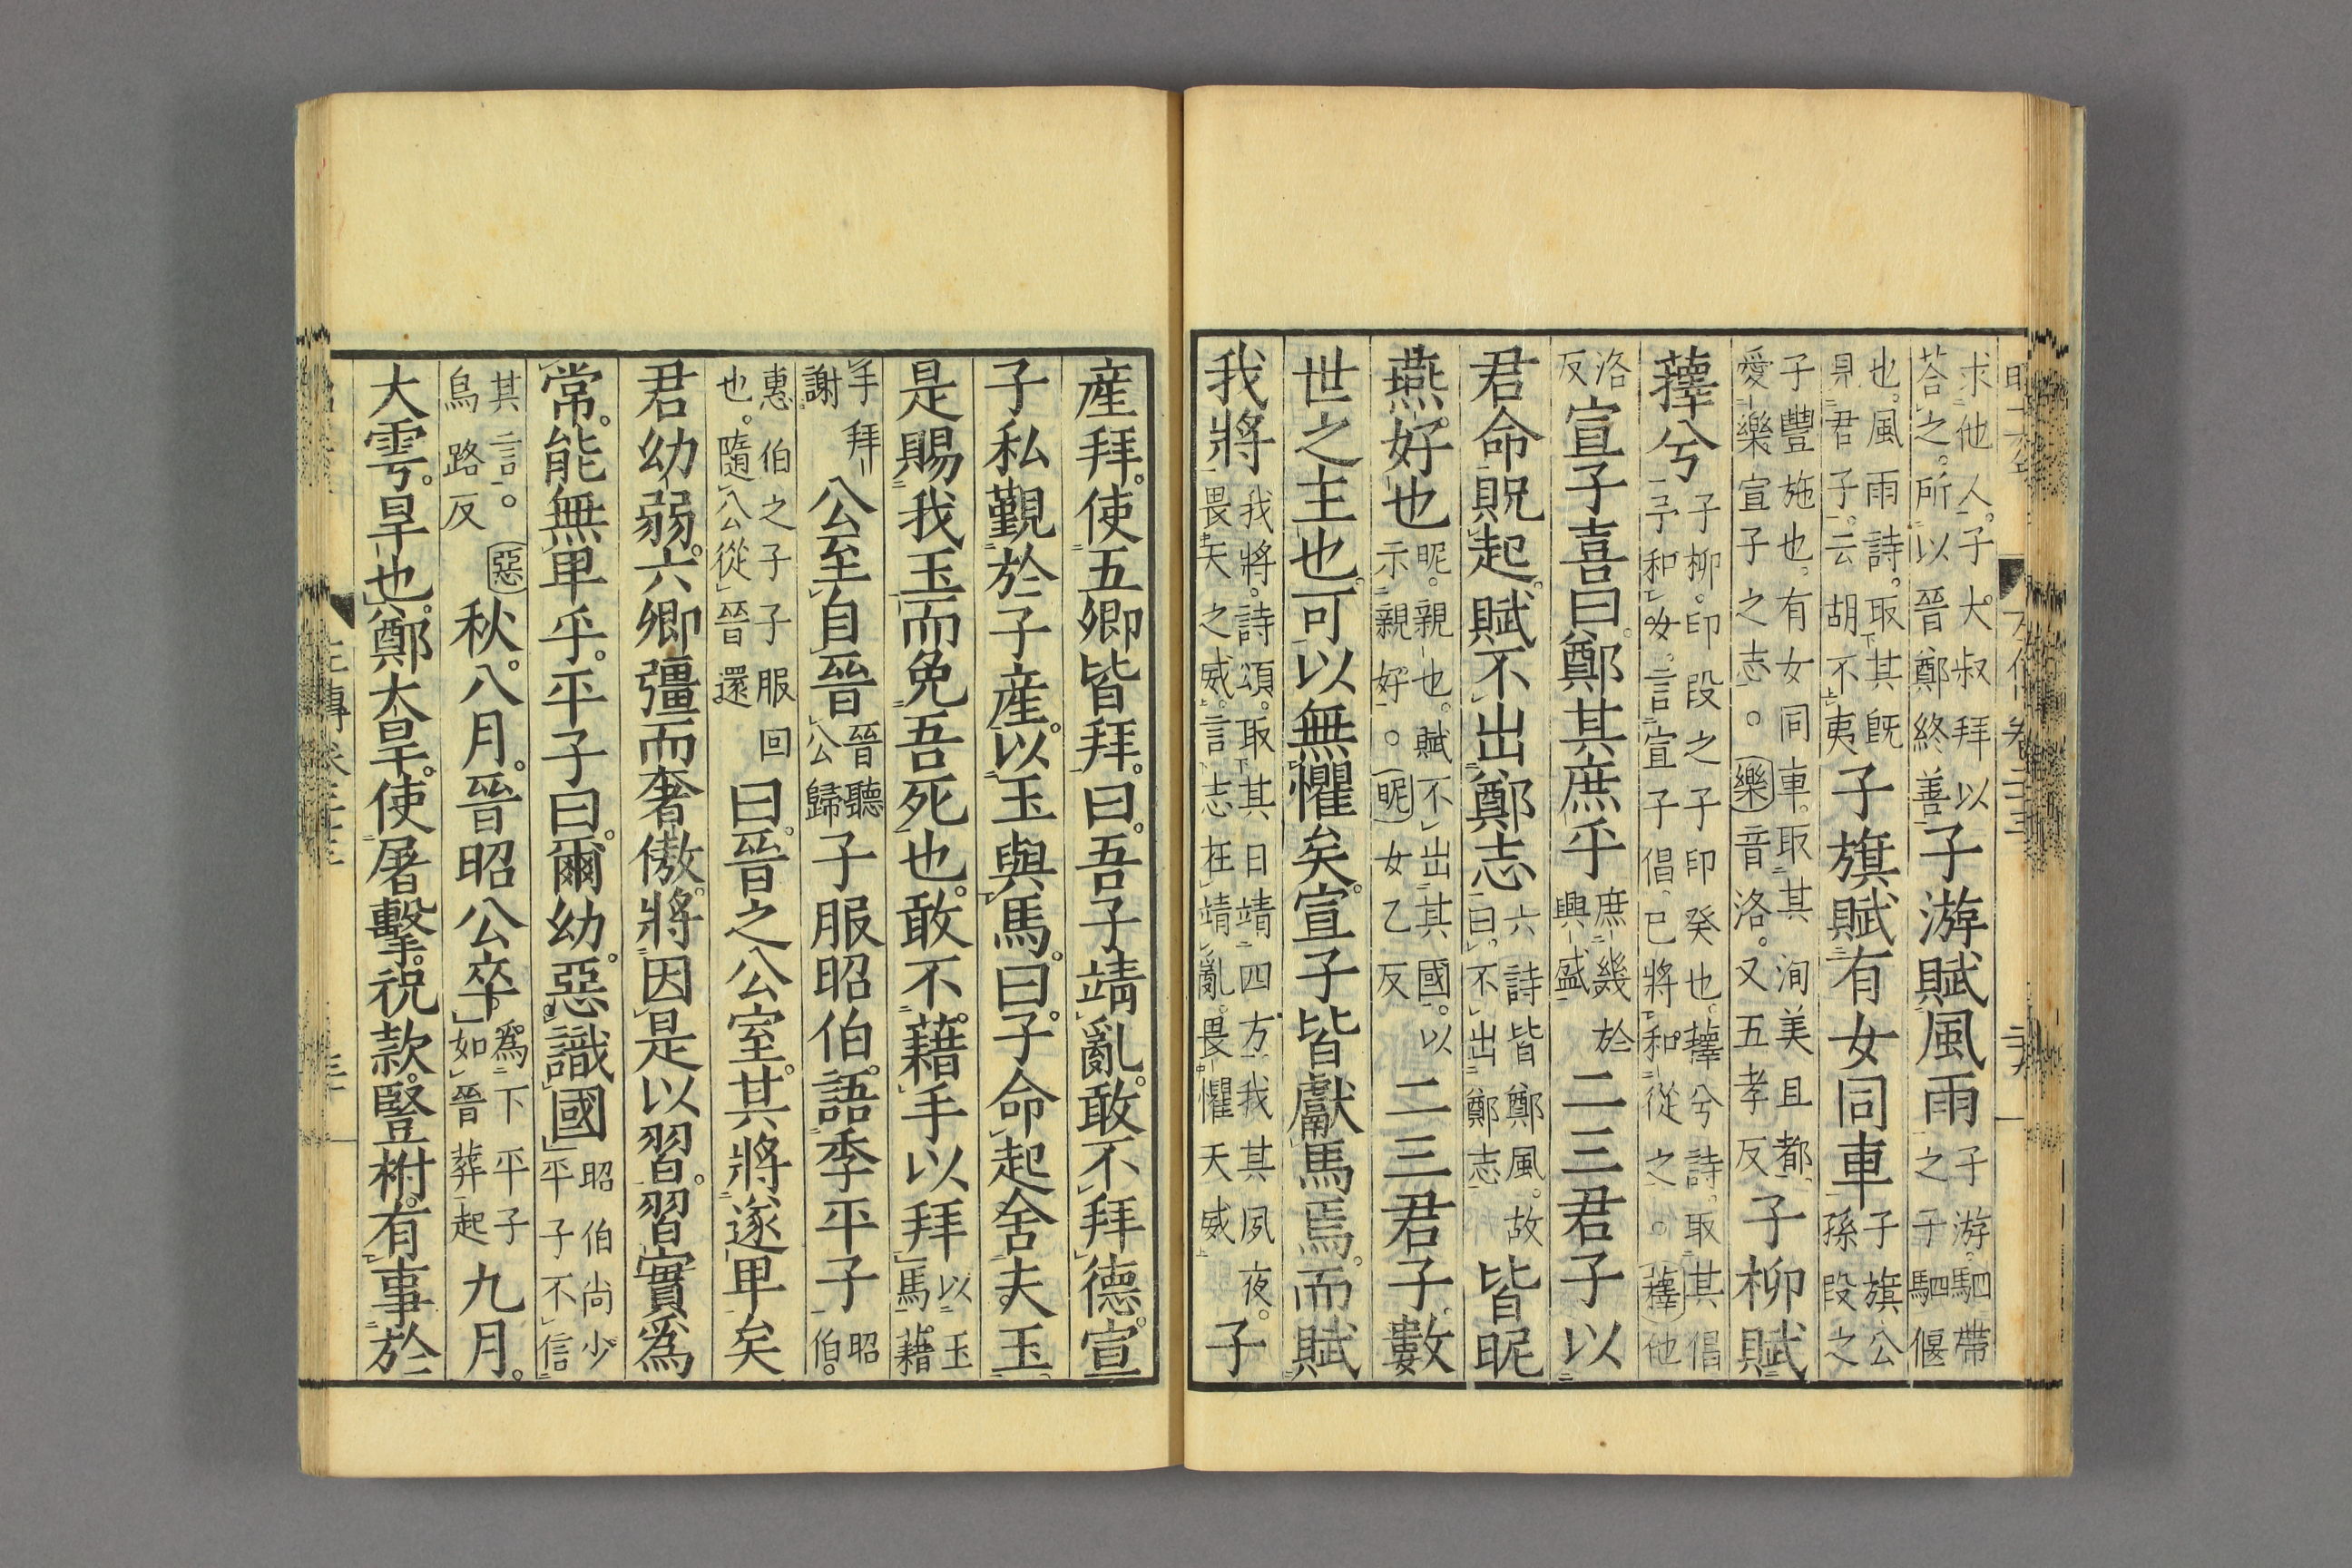 求他人。子大叔拜以荅之。所以晉鄭終善子游賦風雨子游。駟帶之子駟偃
也。風雨詩。取其旣見君子。云胡不夷子旗賦有女同車子旗公孫段之
子豐施也。有女同車。取其洵美且都愛樂宣子之志。樂音洛。又五孝反子柳賦
蘀兮子柳。印段之子印癸也。蘀兮詩。取其倡予和汝。言宣子倡。已將和從之。蘀他
洛反宣子喜曰。鄭其庶乎庶幾於興盛二三君子以
君命貺起。賦不出鄭志六詩皆鄭風。故曰。不出鄭志皆昵
燕好也昵。親也。賦不出其國。以示親好。昵女乙反二三君子。數
世之主也。可以無懼矣。宣子皆獻馬焉。而賦
我將我將。詩頌。取其日靖四方。我其夙夜。畏天之威。言志在靖亂。畏懼天威子
産拜。使五卿皆拜。曰。吾子靖亂。敢不拜德。宣
子私覿於子産。以玉與馬。曰。子命起舍夫玉。
是賜我玉而免吾死也。敢不。藉手以拜以玉馬。藉
手拜謝公至自晉晉聽公歸子服昭伯。語季平子昭伯。
惠伯之子子服回也。隨公從晉還曰。晉之公室。其將遂卑矣
君幼弱。六卿彊而奢傲。將因是以習。習實爲
常。能無卑乎。平子曰。爾幼。惡識國昭伯尚少平子不信
其言。惡烏路反秋。八月。晉昭公卒爲下平子如晉葬起九月。
大雩。旱也。鄭大旱。使屠擊。祝款。豎柎。有事於